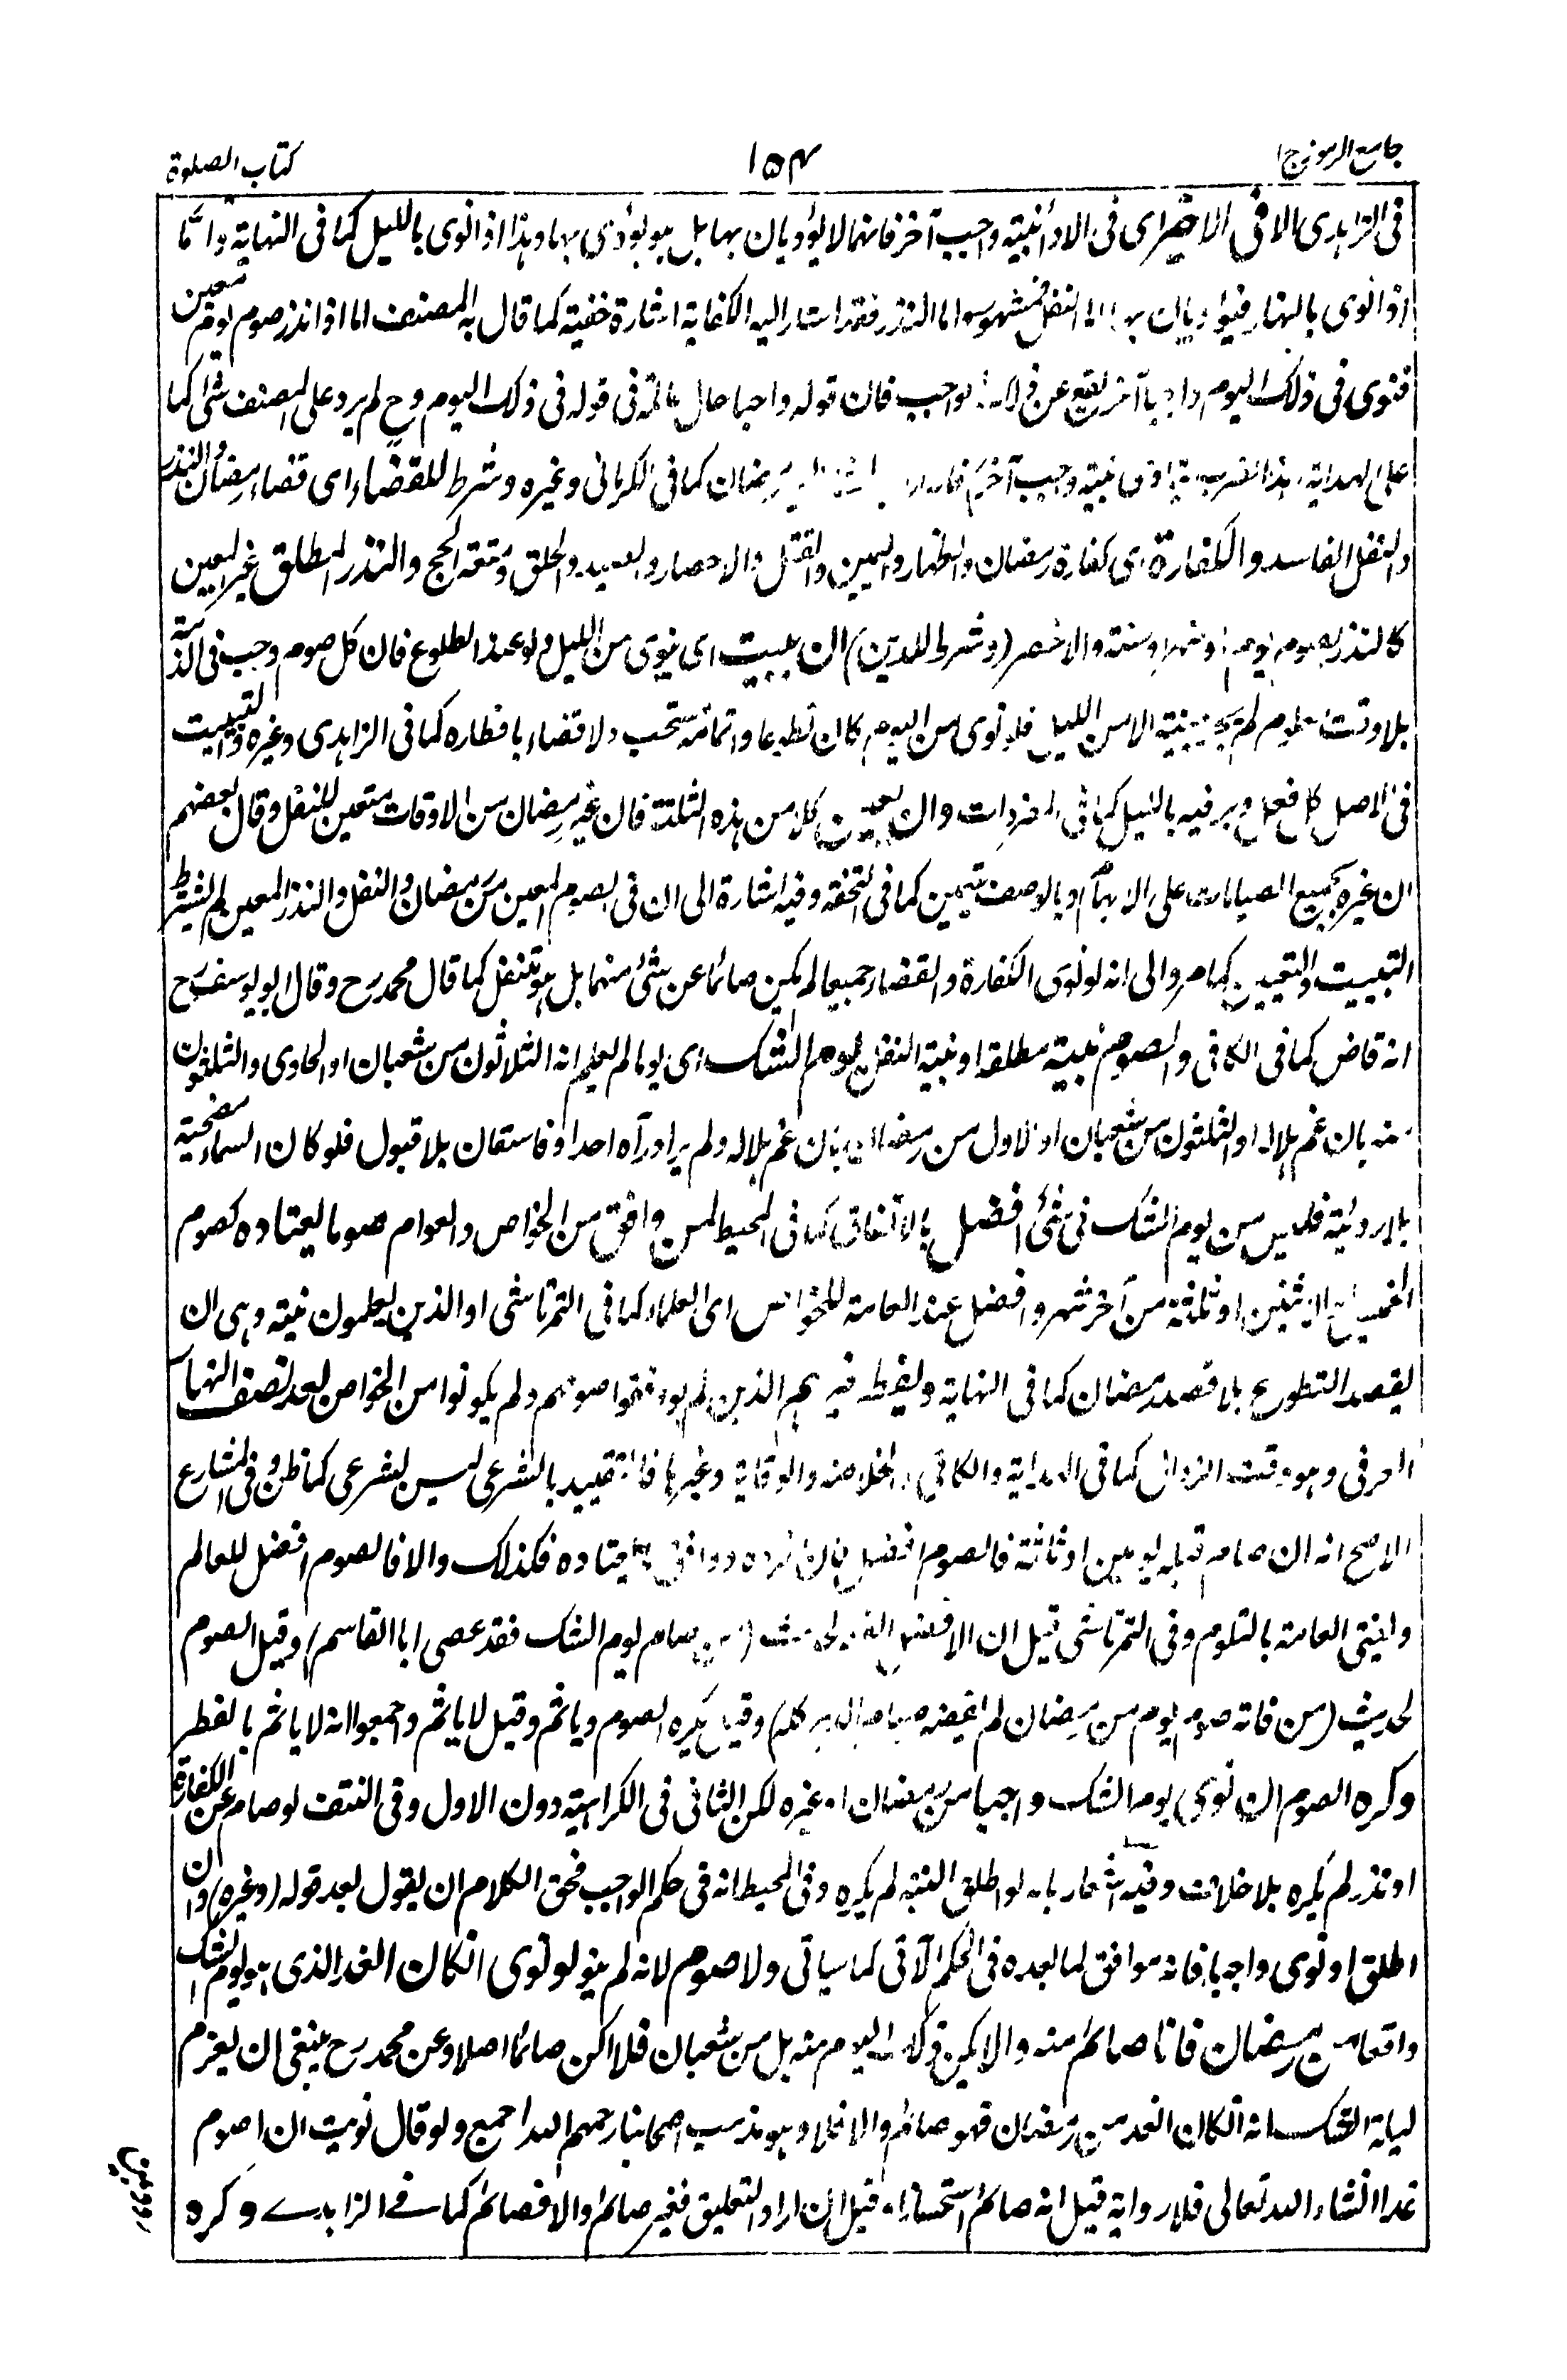 جامع الرموز ج ا
١٥٤
كتاب الصلوة
فى الزاهدى الا فى الاخير اى فى الاداء بنية واجب آخر فانهما لا يؤديان بها بل هو يؤدى بها وهذا اذا نوى بالليل كما فى النهاية واما
اذا نوى بالنهار فيؤديان بها اما النفل فمشهور واما النذر فقد اشار اليه الكفاية اشارة خفية كما قال به المصنف اما اذا نذر صوم يوم معين
فنوى فى ذلك اليوم واجبا آخر يقع عن ذلك الواجب فان قوله واجبا حال عاملة فى قوله فى ذلك اليوم وح لم يرد على المصنف شئ كما
على الهداية هذا نية واجب آخر رمضان كما فى الكرمانى وغيره وشرط للقضاء اى قضاء رمضان والنذر
والنفل الفاسد والكفارة اى كفارة رمضان والظهار واليمين والقتل والاحصار والصيد والحلق ومتعة الحج والنذر المطلق غير المعين
كالنذر بصوم يوم او شهر او سنة والاخصر (وشرط للدين) ان يبيت اى ينوى من الليل ولو عند الطلوع فان كل صوم وجب فى الذمة
بلا وقت معلوم لم يجز بنية الا من الليل فلو نوى من اليوم كان تطوعا واتمامه مستحب ولا قضاء بافطاره كما فى الزاهدى وغيره والتبييت
فى الاصل كل فعل دبر فيه بالليل كما فى المفردات وان يعين كلا من هذه الثلثة فان غير رمضان من الاوقات متعين للنفل وقال بعضهم
ان غيره لجميع الصيامات على الابهام وبالوصف يتعين كما فى التحفة وفيه اشارة الى ان فى الصوم المعين من رمضان والنفل والنذر المعين لم يشترط
التبييت والتعيين كما مر والى انه لو نوى الكفارة والقضاء جميعا لم يكن صائما عن شئ منهما بل هو متنفل كما قال محمد رح وقال ابو يوسف رح
انه قاض كما فى الكافى والصوم بنية مطلقة او بنية النفل يوم الشك اى يوما لم يعلم انه الثلاثون من شعبان او الحادى والثلثون
منه بان غم هلاله او الثلثون من شعبان او الاول من رمضان بان غم هلاله ولم ير او رآه احد او فاسقان بلا قبول فلو كان السماء مضحية
بلا رؤية فليس من يوم الشك فى شئ افضل بالاتفاق كما فى المحيط لمن وافق من الخواص والعوام صوما يعتاده كصوم
الخميس او الاثنين او ثلثة من آخر شهر وافضل عند العامة للخواص اى العلماء كما فى التمرتاشى او الذين يعلمون نيته وهى ان
يقصد التطوع بلا قصد رمضان كما فى النهاية ويفطر غيرهم الذين لم يوافقوا صومهم ولم يكونوا من الخواص بعد نصف النهار
العرفى وهو وقت الزوال كما فى الهداية والكافى والخلاصة والوقاية وغيرها فالتقييد بالشرعى ليس بشرعى كما ظن وفى المشارع
الاصح انه ان صام قبله يومين او ثلثة فالصوم افضل وان افرده ووافق ما يعتاده فكذلك والا فالصوم افضل للعالم
وليفتى العامة بالتلوم وفى التمرتاشى قيل ان الافضل الفطر لحديث (من صام يوم الشك فقد عصى ابا القاسم) وقيل الصوم
لحديث (من فاته صوم يوم من رمضان لم يقضه صيام الدهر كله) وقيل يكره الصوم وياثم وقيل لا ياثم واجمعوا انه لا ياثم بالفطر
وكره الصوم ان نوى يوم الشك واجبا من رمضان او غيره لكن الثانى فى الكراهية دون الاول وفى النتف لو صام عن الكفارة
او نذر لم يكره بلا خلاف وفيه اشعار بانه لو اطلق النية لم يكره وفى المحيط انه فى حكم الواجب فحق الكلام ان يقول بعد قوله (وغيره) وان
اطلق او نوى واجبا فانه موافق لما بعده فى الحكم الآتى كما سياتى ولا صوم لانه لم ينو لو نوى ان كان الغد الذى هو يوم الشك
واقعا من رمضان فانا صائم منه والا يكن ذلك اليوم منه بل من شعبان فلا اكن صائما اصلا وعن محمد رح ينبغى ان يعزم
ليلة الشك انه ان كان الغد من رمضان فهو صائم والا فلا وهو مذهب اصحابنا رحمهم الله اجمع ولو قال نويت ان اصوم
غدا ان شاء الله تعالى فلا رواية قيل انه صائم استحسانا وقيل ان اراد التعليق فغير صائم والا فصائم كما فى الزاهدى وكره